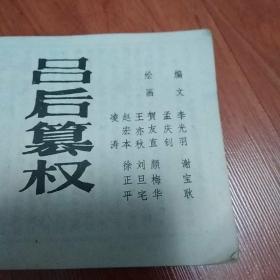 吕后篡权
编文
李光羽 谢宝耿
孟庆钊
绘画
賀友直 颜梅华
王亦秋 刘旦宅
赵宏本 徐正平
凌涛